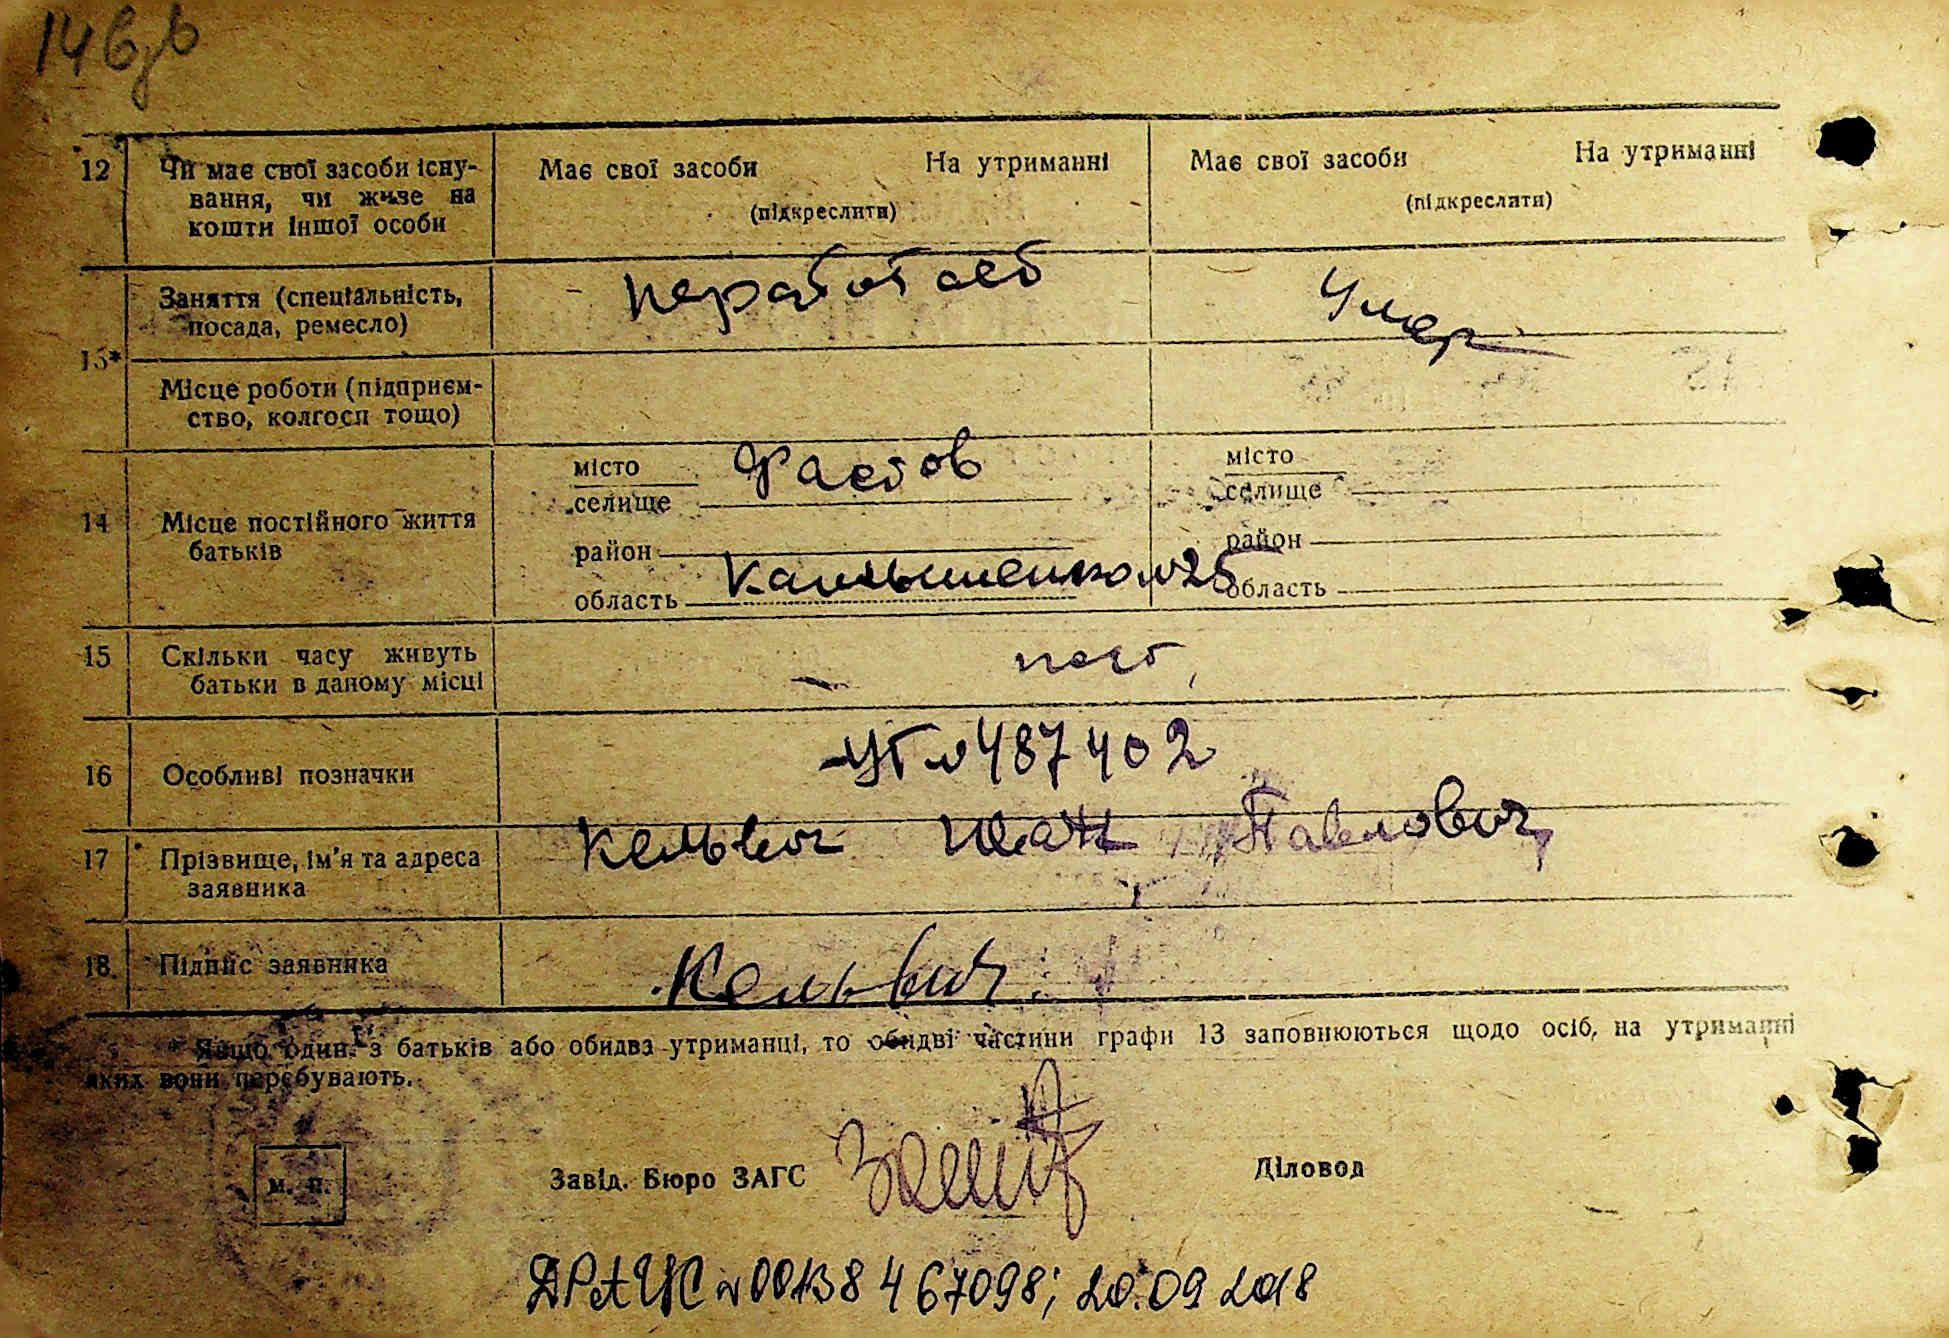 12 Чи має свої засоби існу- Має свої засоби На утриманні Має свої засоби На утриманні
вання, чи живе на (підкреслити) (підкреслити)
кошти іншої особи
Заняття (спеціальність, неработает Умер
посада, ремесло)
13*
Місце роботи (підприєм-
ство, колгосп тощо)
місто Фастов місто
селище селище
14 Місце постійного життя
батьків
район район
область область
15 Скільки часу живуть
батьки в даному місці
16 Особливі позначки 487402
17 Прізвище, ім'я та адреса Павлович
заявника
18. Підпис заявника
* Якщо один з батьків або обидва утриманці, то обидві частини графи 13 заповнюються щодо осіб, на утриманні
яких вони перебувають.
м. п. Завід. Бюро ЗАГС Діловод
ДРАЦС № 00138467098; 20.09 2018